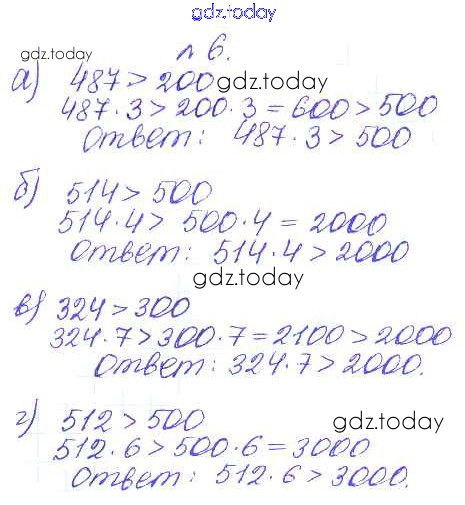 gdz.today
№ 6.
gdz.today
а) 487 > 200 gdz.today
487 · 3 > 200 · 3 = 600 > 500
Ответ: 487 · 3 > 500
б) 514 > 500
514 · 4 > 500 · 4 = 2000
Ответ: 514 · 4 > 2000
gdz.today
в) 324 > 300
324 · 7 > 300 · 7 = 2100 > 2000
Ответ: 324 · 7 > 2000.
г) 512 > 500 gdz.today
512 · 6 > 500 · 6 = 3000
Ответ: 512 · 6 > 3000.